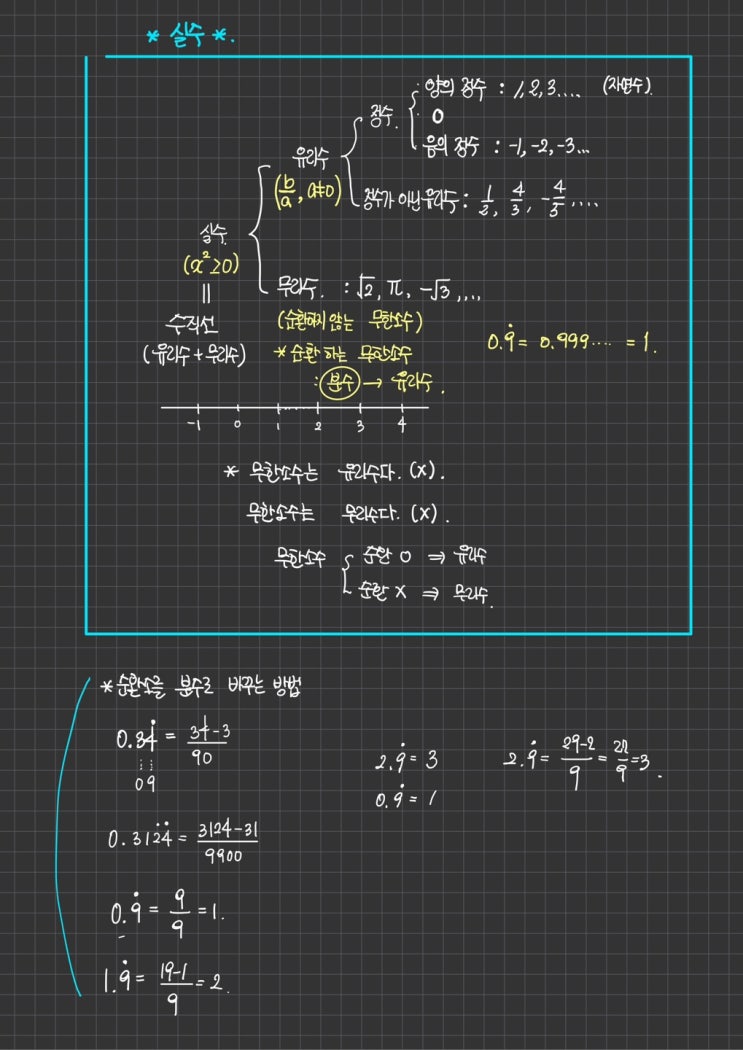 * 실수 *.
양의 정수 : 1, 2, 3.... (자연수).
정수. 0
음의 정수 : -1, -2, -3...
유리수
(b/a, a≠0)
정수가 아닌 유리수 : 1/2, 4/3, -4/5 ....
실수.
(x²≥0)
||
수직선
(유리수 + 무리수)
무리수. : √2, π, -√3 ,...
(순환하지 않는 무한소수)
* 순환하는 무한소수
: 분수 → 유리수.
0.9̇ = 0.999···· = 1.
-1 0 1 2 3 4
* 무한소수는 유리수다. (X).
무한소수는 무리수다. (X).
무한소수
순환 O ⇒ 유리수
순환 X ⇒ 무리수.
* 순환소을 분수로 바꾸는 방법
0.34̇ = 34-3/90
0 9
0.312̇4̇ = 3124-31/9900
0.9̇ = 9/9 = 1.
1.9̇ = 19-1/9 = 2.
2.9̇ = 3
0.9̇ = 1
2.9̇ = 29-2/9 = 27/9 = 3.